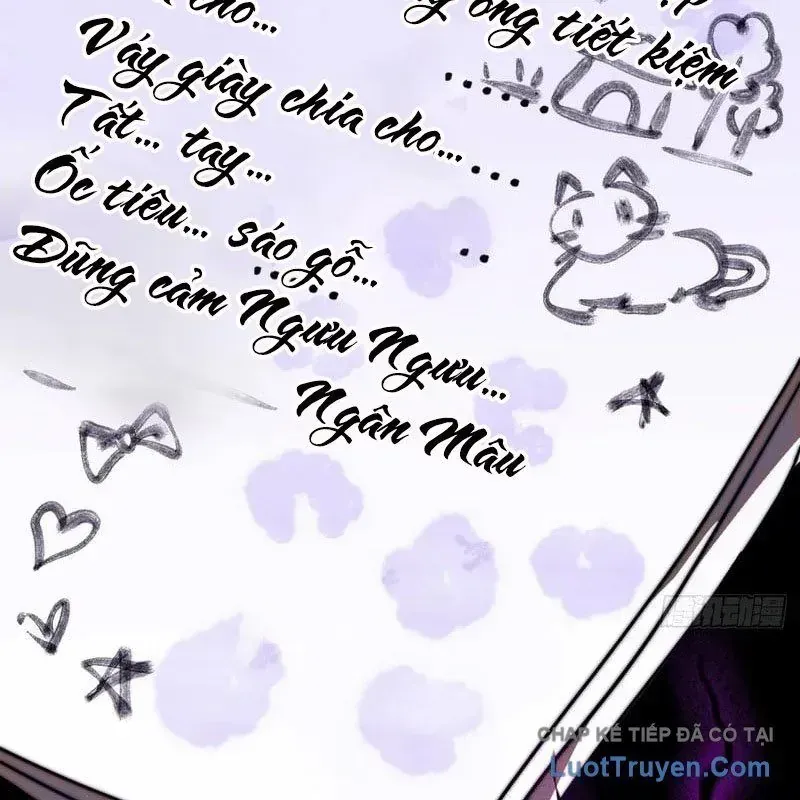 cho...
ống tiết kiệm
Váy giày chia cho...
Tất... tay...
Ốc tiêu... sáo gỗ...
Dũng cảm Ngưu Ngưu...
Ngân Mâu
CHAP KẾ TIẾP ĐÃ CÓ TẠI
LuotTruyen.Com